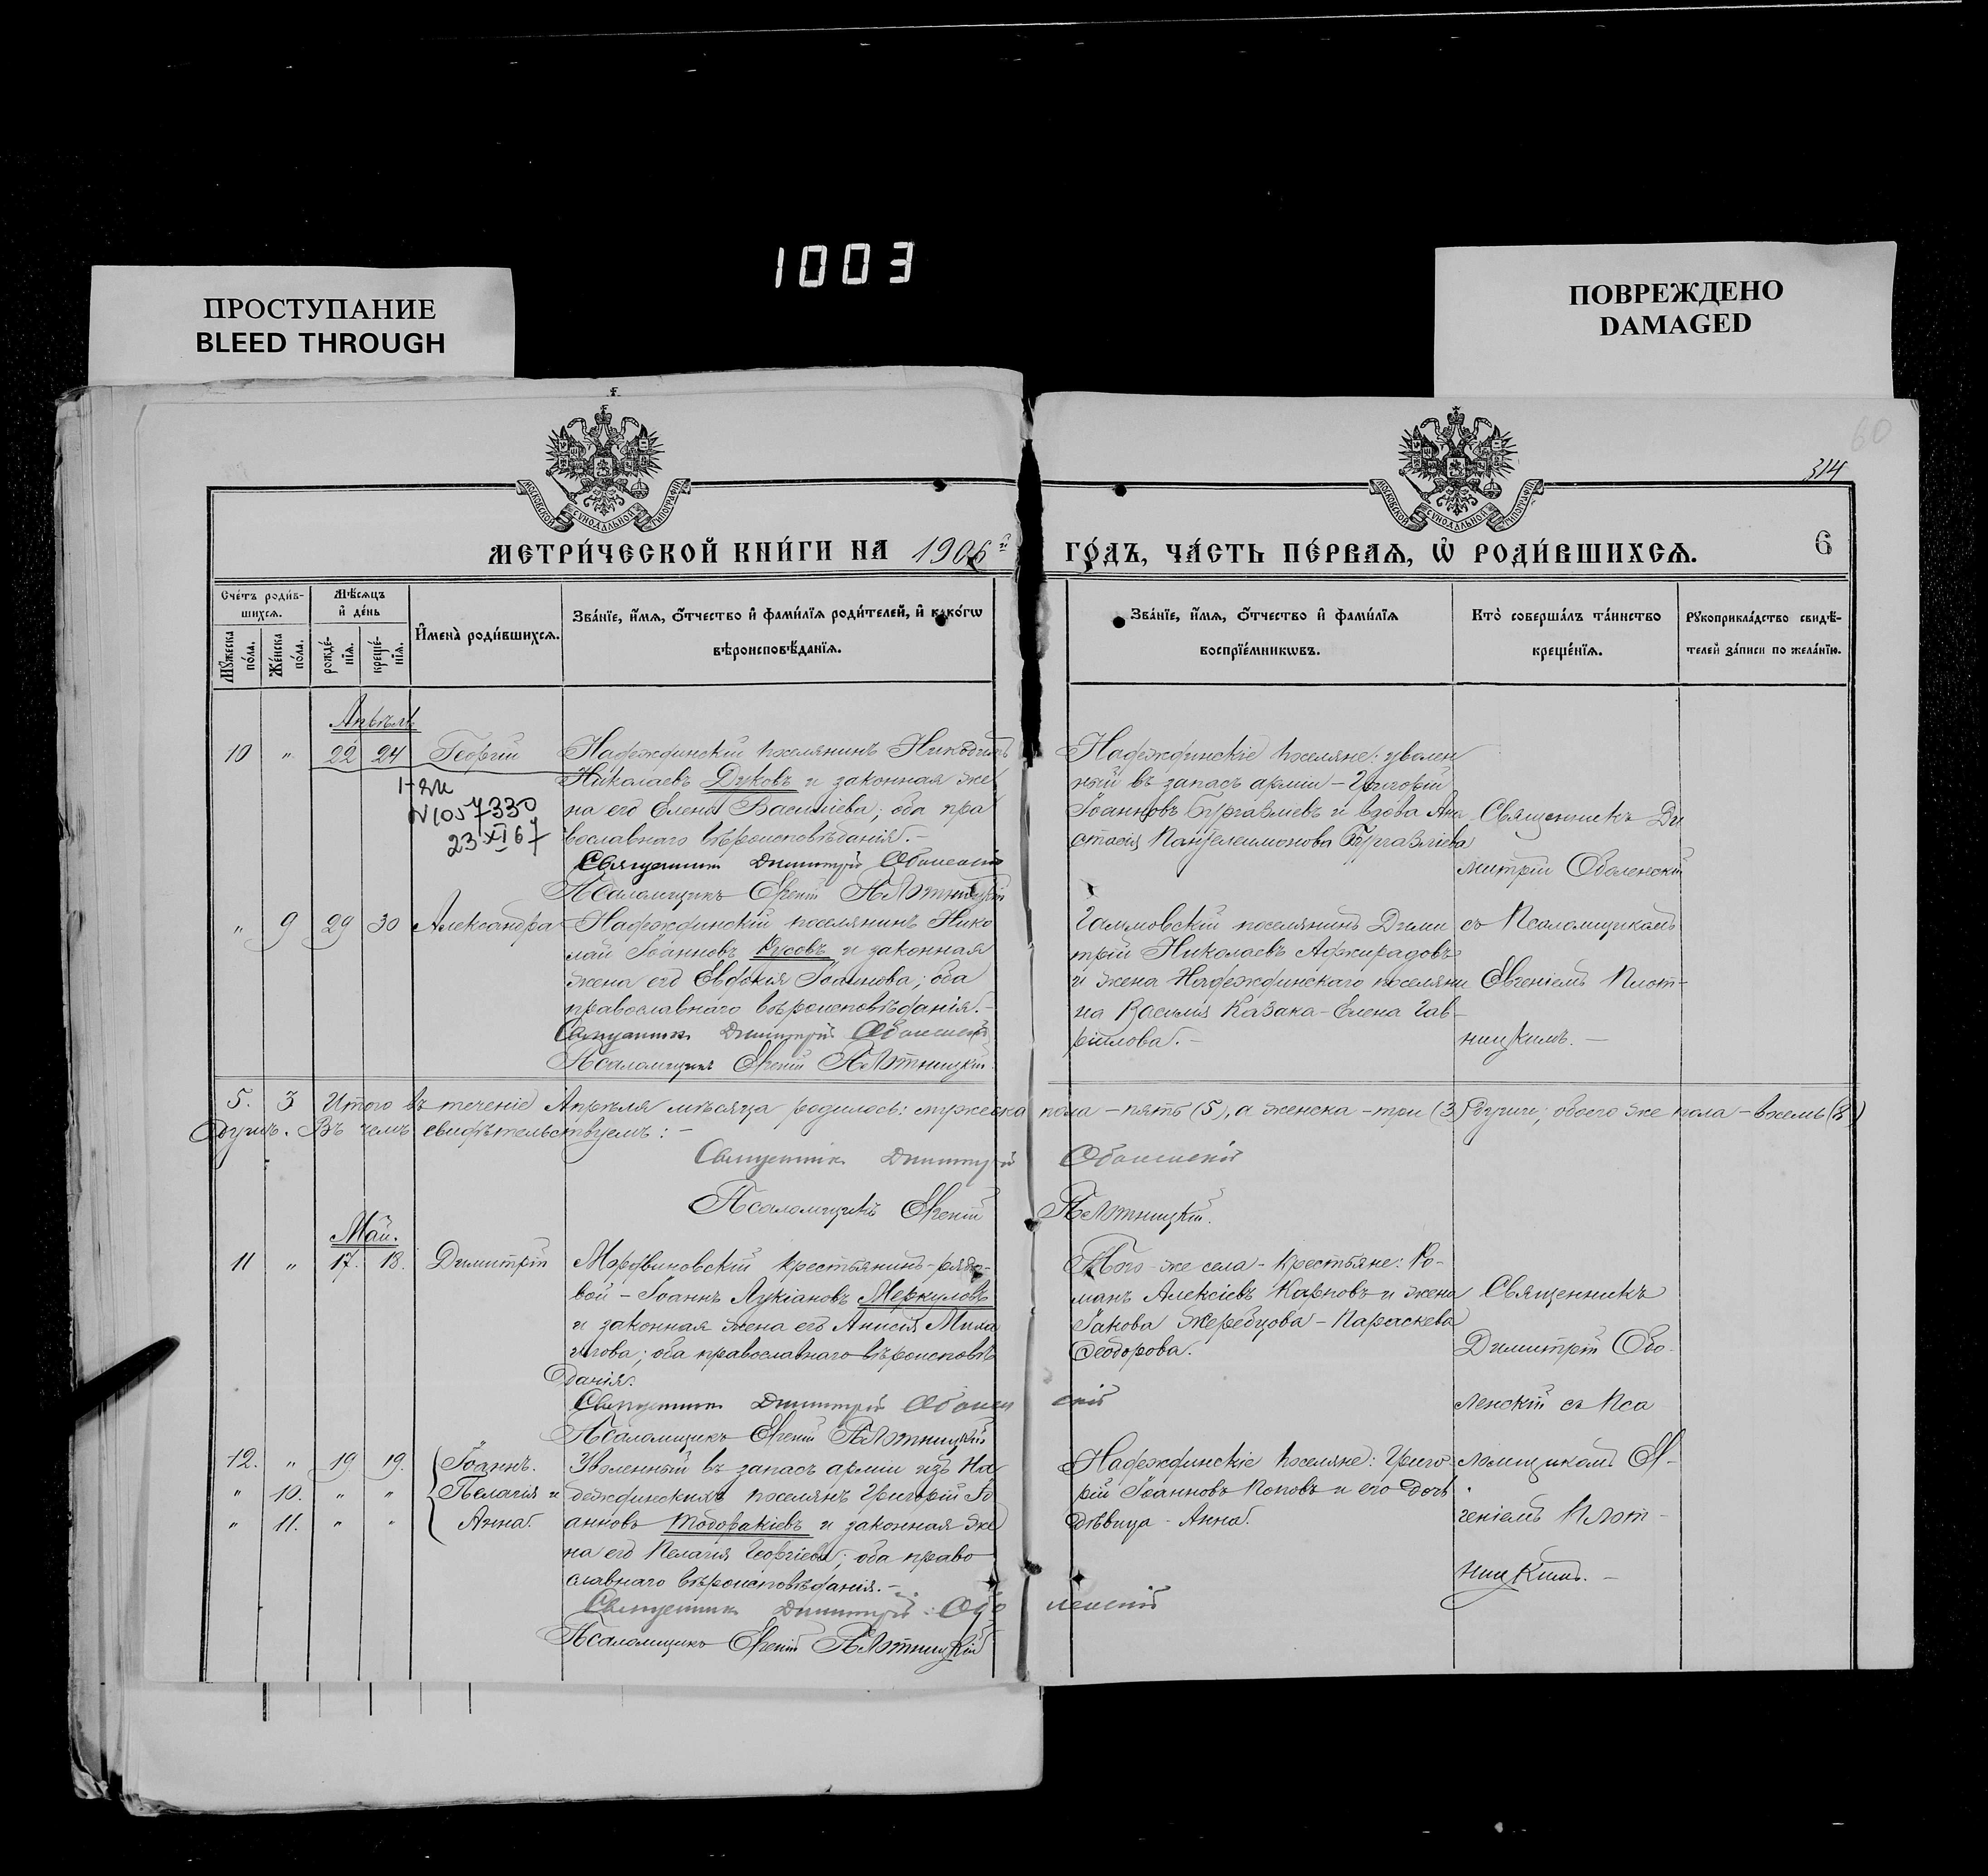 1003
ПРОСТУПАНИЕ
BLEED THROUGH
ПОВРЕЖДЕНО
DAMAGED
60
314
МОСКОВСКОЙ СѴНОДАЛЬНОЙ ТИПОГРАФІИ
МОСКОВСКОЙ СѴНОДАЛЬНОЙ ТИПОГРАФІИ
МЕТРИ́ЧЕСКОЙ КНИ́ГИ НА 1906й ГО́ДЪ, ЧА́СТЬ ПЕ́РВАѦ, Ѡ҆ РОДИ́ВШИХСѦ. 6
Сче́тъ роди́в-
шихсѧ.
Мѣ́сѧцъ
и҆ де́нь
Мꙋ́жеска по́ла.
Же́нска по́ла.
рожде́-
нїѧ.
креще́-
нїѧ.
И҆мена̀ роди́вшихсѧ.
Зва́нїе, и҆́мѧ, ѻ҆́тчество и҆ фами́лїѧ роди́телей, и҆ како́гѡ
вѣроисповѣ́данїѧ.
Зва́нїе, и҆́мѧ, ѻ҆́тчество и҆ фами́лїѧ
воспрїе́мникѡвъ.
Кто̀ соверша́лъ та́инство
креще́нїѧ.
Рꙋкоприкла́дство свидѣ́-
телей за́писи по жела́нїю.
Апрѣль
10 " 22 24 Георгій
Надеждинскій поселянинъ Никодимъ
Николаевъ Дуковъ и законная же
на его Елена Васильева; оба пра
вославнаго вѣроисповѣданія.-
Священникъ Димитрій Оболенскій
Псаломщикъ Евгеній Плотницкій
N1057330
23 XI 67
Надеждинскіе поселяне: уволен
ный въ запасъ арміи - Григорій
Іоанновъ и вдова Ана
стасія Пантелеимонова
Священникъ Ди
митрій Оболенскій
" 9 29 30 Александра
Надеждинскій поселянинъ Нико
лай Іоанновъ Русовъ и законная
жена его Евдокія Іоаннова; оба
православнаго вѣроисповѣданія.-
Священникъ Димитрій Оболенскій
Псаломщикъ Евгеній Плотницкій
поселянинъ Дими
трій Николаевъ Аджирадовъ
и жена Надеждинскаго поселяни
на Василія Казака - Елена Гав-
риилова.-
съ Псаломщикомъ
Евгеніемъ Плот-
ницкимъ.-
5. 3 Итого въ теченіе Апрѣля мѣсяца родилось: мужеска пола - пять (5), а женска - три (3) души; обоего же пола - восемь (8)
душъ. Въ чемъ свидѣтельствуемъ:-
Священникъ Димитрій Оболенскій
Псаломщикъ Евгеній Плотницкій.
Май.
11 " 17. 18. Димитрій
Мордвиновскій крестьянинъ-рядо-
вой - Іоаннъ Лукіановъ Меркуловъ
и законная жена его Анисія
оба православнаго вѣроисповѣ
данія.
Священникъ Димитрій Оболенскій
Псаломщикъ Евгеній Плотницкій
Того-же села - крестьяне: Ро-
манъ Алексіевъ Карповъ и жена
Іакова Жеребцова - Параскева
Ѳеодорова.
Священникъ
Димитрій Обо-
ленскій съ Пса
12. " 19 19. Іоаннъ.
" 10. " " Пелагія и
" 11. " " Анна.
Уволенный въ запасъ арміи изъ На
деждинскихъ поселянъ Григорій Іо
анновъ Тодоракіевъ и законная же
на его Пелагія Георгіева; оба право
славнаго вѣроисповѣданія.-
Священникъ Димитрій Оболенскій
Псаломщикъ Евгеній Плотницкій
Надеждинскіе поселяне: Григо
рій Іоанновъ Поповъ и его дочь
дѣвица - Анна.
ломщикомъ Ев-
геніемъ Плот-
ницкимъ.-